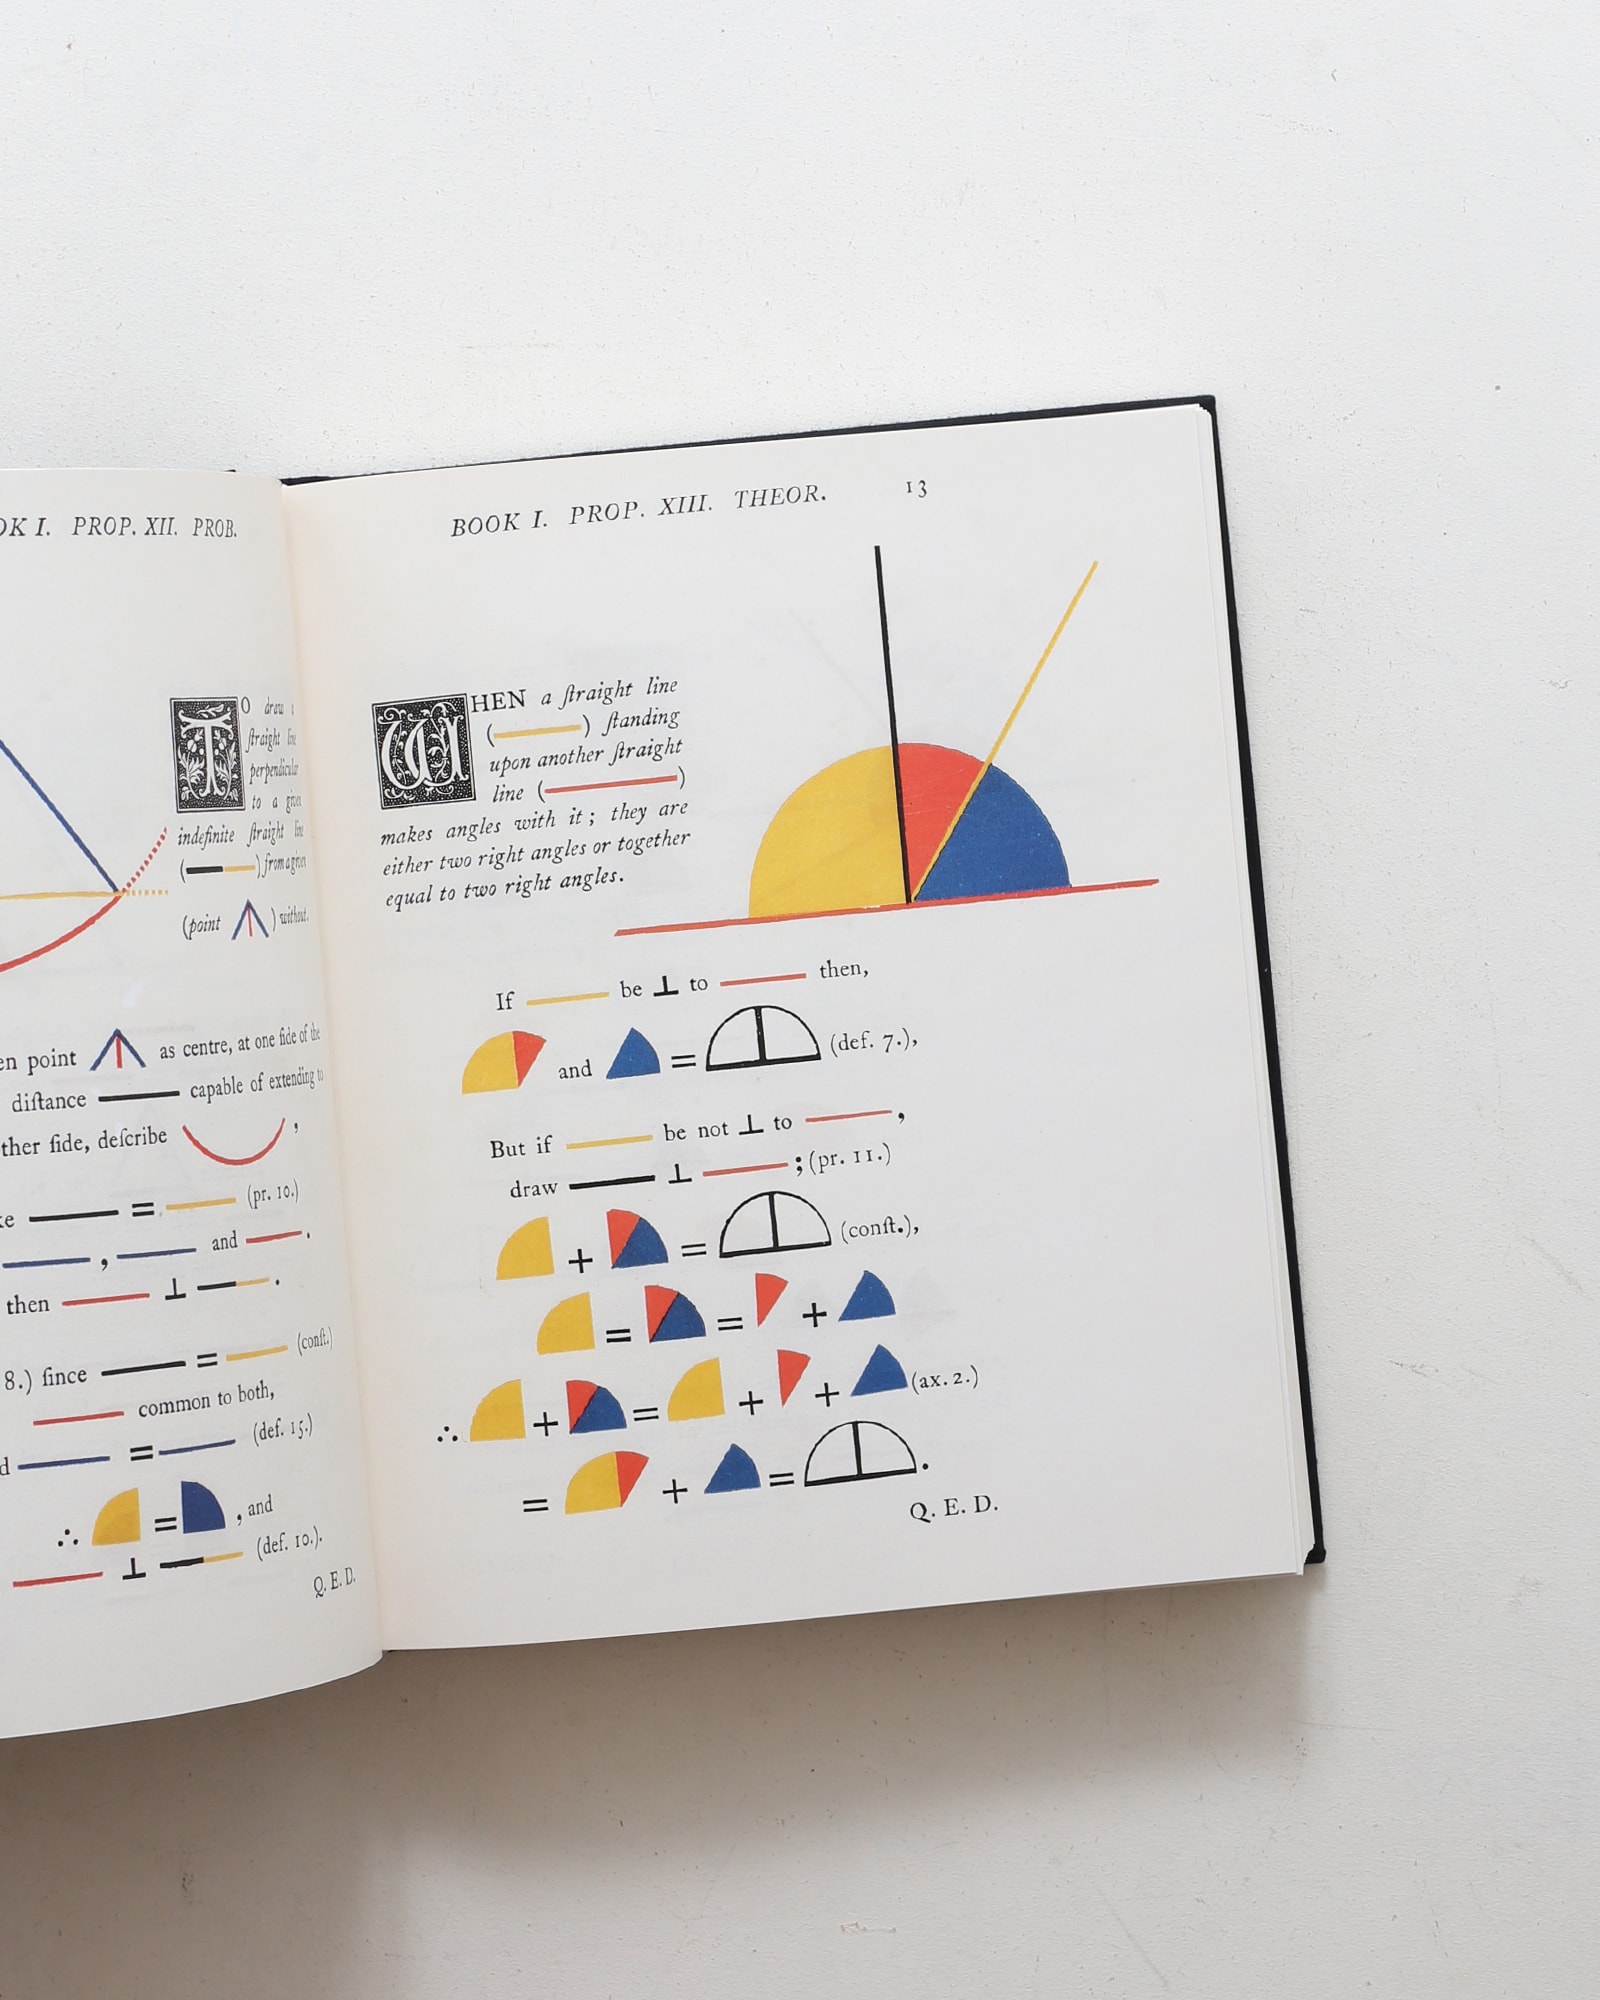 OK I. PROP. XII. PROB.
TO draw a
ſtraight line
perpendicular
to a given
indefinite ſtraight line
( ) from a given
(point ) without.
en point as centre, at one ſide of the
diſtance capable of extending to
ther ſide, deſcribe ,
ke = (pr. 10.)
, and .
then ⊥ .
8.) ſince = (conſt.)
common to both,
d = (def. 15.)
∴ = , and
⊥ (def. 10.).
Q. E. D.
BOOK I. PROP. XIII. THEOR. 13
WHEN a ſtraight line
( ) ſtanding
upon another ſtraight
line ( )
makes angles with it; they are
either two right angles or together
equal to two right angles.
If be ⊥ to then,
and = (def. 7.),
But if be not ⊥ to ,
draw ⊥ ; (pr. 11.)
+ = (conſt.),
= = +
∴ + = + + (ax. 2.)
= + = .
Q. E. D.